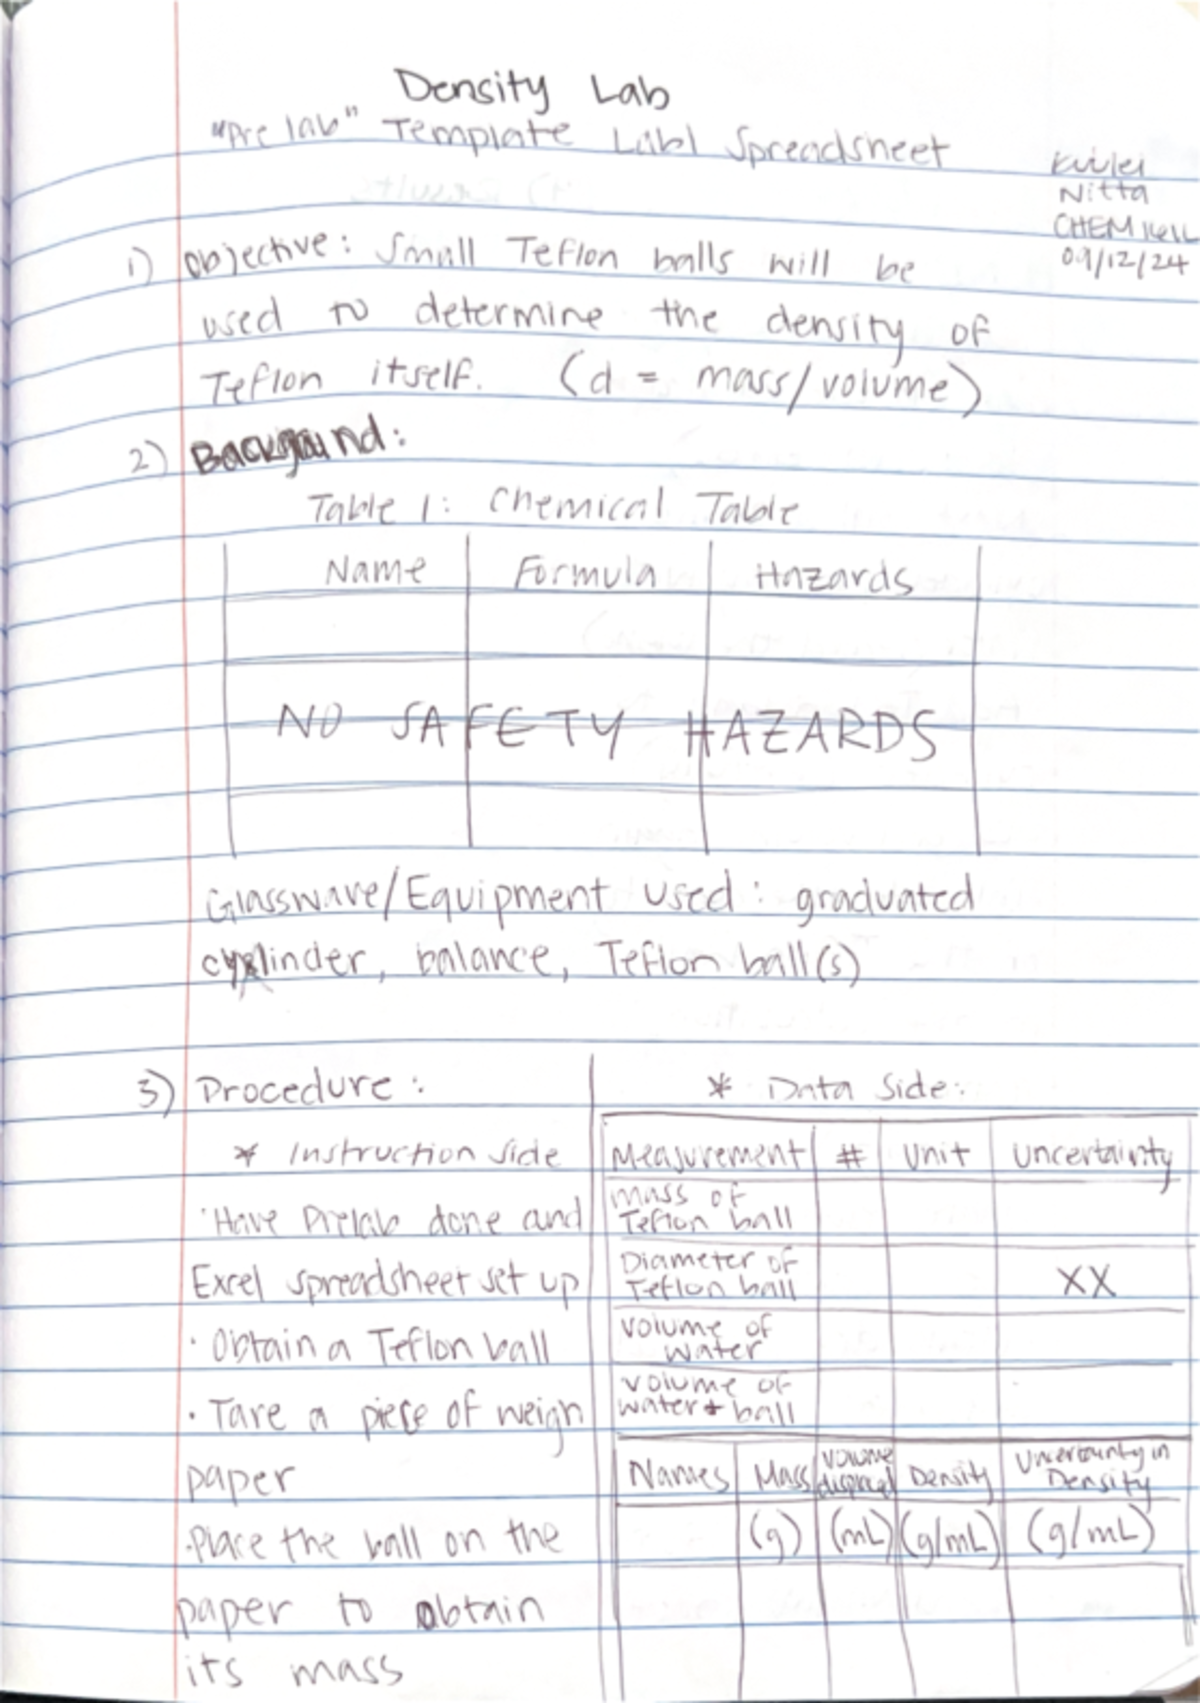 Density Lab
"Pre lab" Template Lab1 Spreadsheet
Nitta
CHEM 161L
09/12/24
1) Objective: Small Teflon balls will be
used to determine the density of
Teflon itself. (d = mass/volume)
2) Background:
Table 1: Chemical Table
Name Formula Hazards
NO SAFETY HAZARDS
Glassware/Equipment used: graduated
cylinder, balance, Teflon ball(s)
3) Procedure:
* Instruction side
· Have Prelab done and
Excel spreadsheet set up
· Obtain a Teflon ball
· Tare a piece of weigh
paper
· Place the ball on the
paper to obtain
its mass
* Data Side:
Measurement # Unit Uncertainty
mass of
Teflon ball
Diameter of
Teflon ball XX
volume of
water
volume of
water + ball
Names Mass Volume displaced Density Uncertainty in Density
(g) (mL) (g/mL) (g/mL)